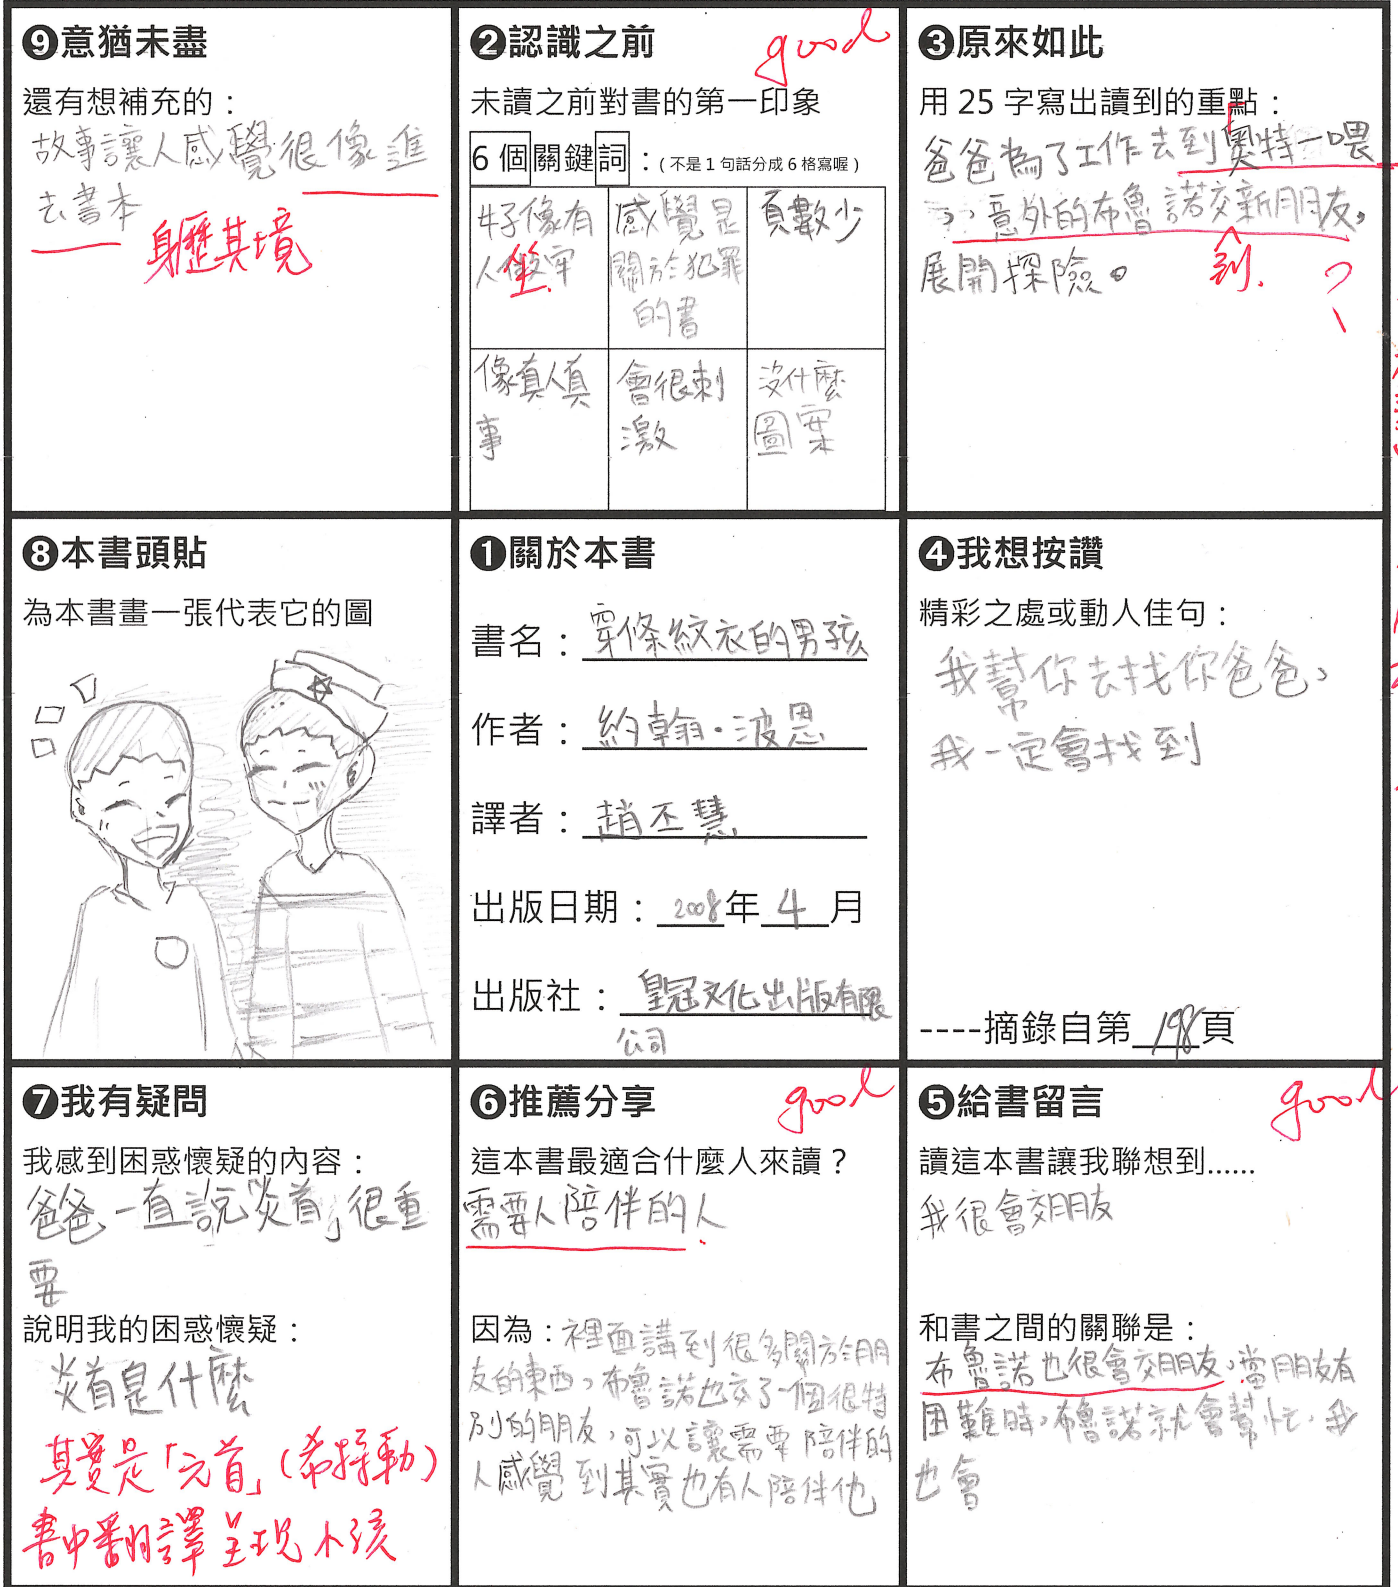 ❾意猶未盡
還有想補充的：
故事讓人感覺很像進
去書本
身歷其境
❷認識之前
good
未讀之前對書的第一印象
6個關鍵詞：(不是1句話分成6格寫喔)
好像有
人 牢
坐
感覺是
關於犯罪
的書
頁數少
像真人真
事
會很刺
激
沒什麼
圖案
❸原來如此
用 25 字寫出讀到的重點：
爸爸為了工作去到奧特一喂
，意外的布魯諾交新朋友，
到
展開探險。
？
❽本書頭貼
為本書畫一張代表它的圖
❶關於本書
書名：穿條紋衣的男孩
作者：約翰·波恩
譯者：趙丕慧
出版日期：2008年4月
出版社：皇冠文化出版有限
公司
❹我想按讚
精彩之處或動人佳句：
我幫你去找你爸爸，
我一定會找到
----摘錄自第198頁
❼我有疑問
我感到困惑懷疑的內容：
爸爸一直說「炎首」很重
要
說明我的困惑懷疑：
炎首是什麼
其實是「元首」(希特勒)
書中翻譯呈現小孩
❻推薦分享
good
這本書最適合什麼人來讀？
需要人陪伴的人
因為：裡面講到很多關於朋
友的東西，布魯諾也交了一個很特
別的朋友，可以讓需要陪伴的
人感覺到其實也有人陪伴他
❺給書留言
good
讀這本書讓我聯想到……
我很會交朋友
和書之間的關聯是：
布魯諾也很會交朋友，當朋友有
困難時，布魯諾就會幫忙，我
也會